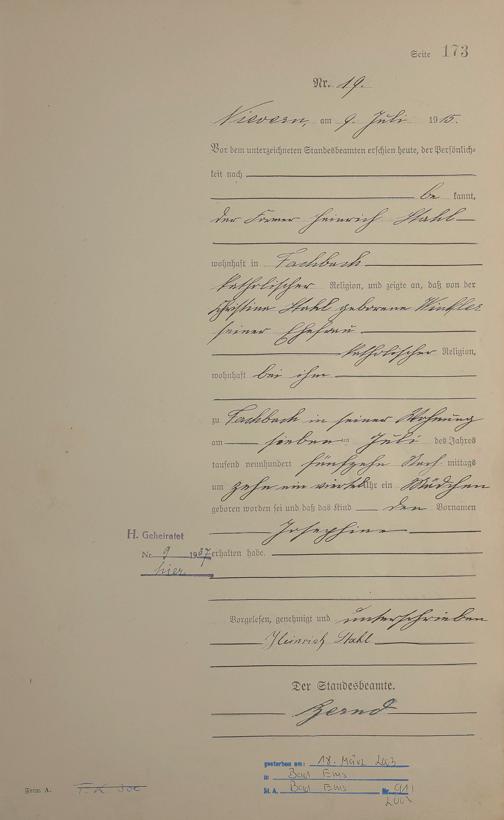 Seite 173
Nr. 19.
Nievern, am 9. Juli 1915.
Vor dem unterzeichneten Standesbeamten erschien heute, der Persönlich-
keit nach
be kannt,
der Former Heinrich Stahl
wohnhaft in Fachbach
katholischer Religion, und zeigte an, daß von der
Christina Stahl geborene Winkler
seiner Ehefrau
katholischer Religion,
wohnhaft bei ihm
zu Fachbach in seiner Wohnung
am sieben ten Juli des Jahres
tausend neunhundert fünfzehn Nach mittags
um zehn ein viertel Uhr ein Mädchen
geboren worden sei und daß das Kind den Vornamen
Josephine
H. Geheiratet
Nr. 9 1937 erhalten habe.
hier
Vorgelesen, genehmigt und unterschrieben
Heinrich Stahl
Der Standesbeamte.
gestorben am: 18. März 2003
in Bad Ems
St. A. Bad Ems Nr. 91/
2003
Form A.